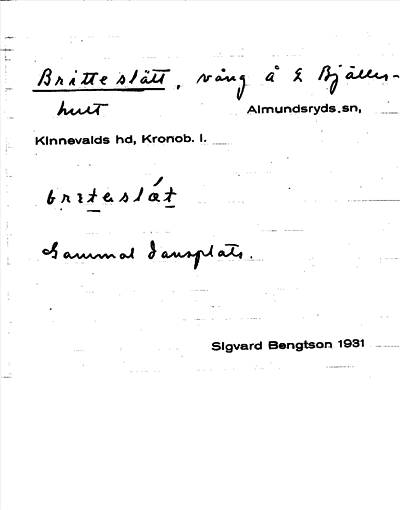 Britteslätt, vång å L Bjälles-
hult
Almundsryds.sn,
Kinnevalds hd, Kronob. l.
britəslǽt
Gammal dansplats.
Sigvard Bengtson 1931